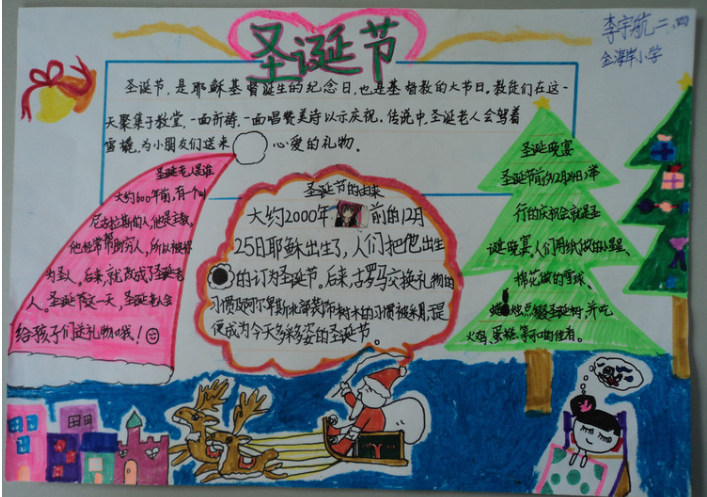 圣诞节
李宇航二、四
金海岸小学
圣诞节,是耶稣基督诞生的纪念日,也是基督教的大节日。教徒们在这一
天聚集于教堂,一面祈祷,一面唱赞美诗以示庆祝。传说中,圣诞老人会驾着
雪橇,为小朋友们送来 心爱的礼物。
圣诞老人是谁
大约1600年前,有一个叫
尼古拉斯的人,他是主教,
他经常帮助穷人,所以被称
为圣人。后来,就改成了圣诞老
人。圣诞节这一天,圣诞老人会
给孩子们送礼物哦!
圣诞节的由来
大约2000年 前的12月
25日耶稣出生了,人们把他出生
的 订为圣诞节。后来,古罗马交换礼物的
习惯及阿尔卑斯 部装饰树木的习惯被采用,
便成为今天多彩多姿的圣诞节。
圣诞晚宴
圣诞节前夕12月24日举
行的庆祝会就是圣
诞晚宴。人们用纸做的小星星、
棉花做的雪球、
蜡烛点缀圣诞树,并吃
火鸡、蛋糕等 佳肴。